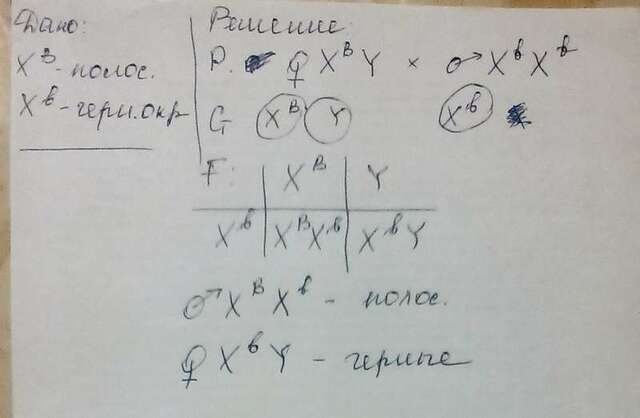 Дано:
X^B - полос.
X^b - черн. окр
Решение:
P. ♀ X^B Y × ♂ X^b X^b
G X^B Y X^b
F: X^B Y
X^b X^B X^b X^b Y
♂ X^B X^b - полос.
♀ X^b Y - черные